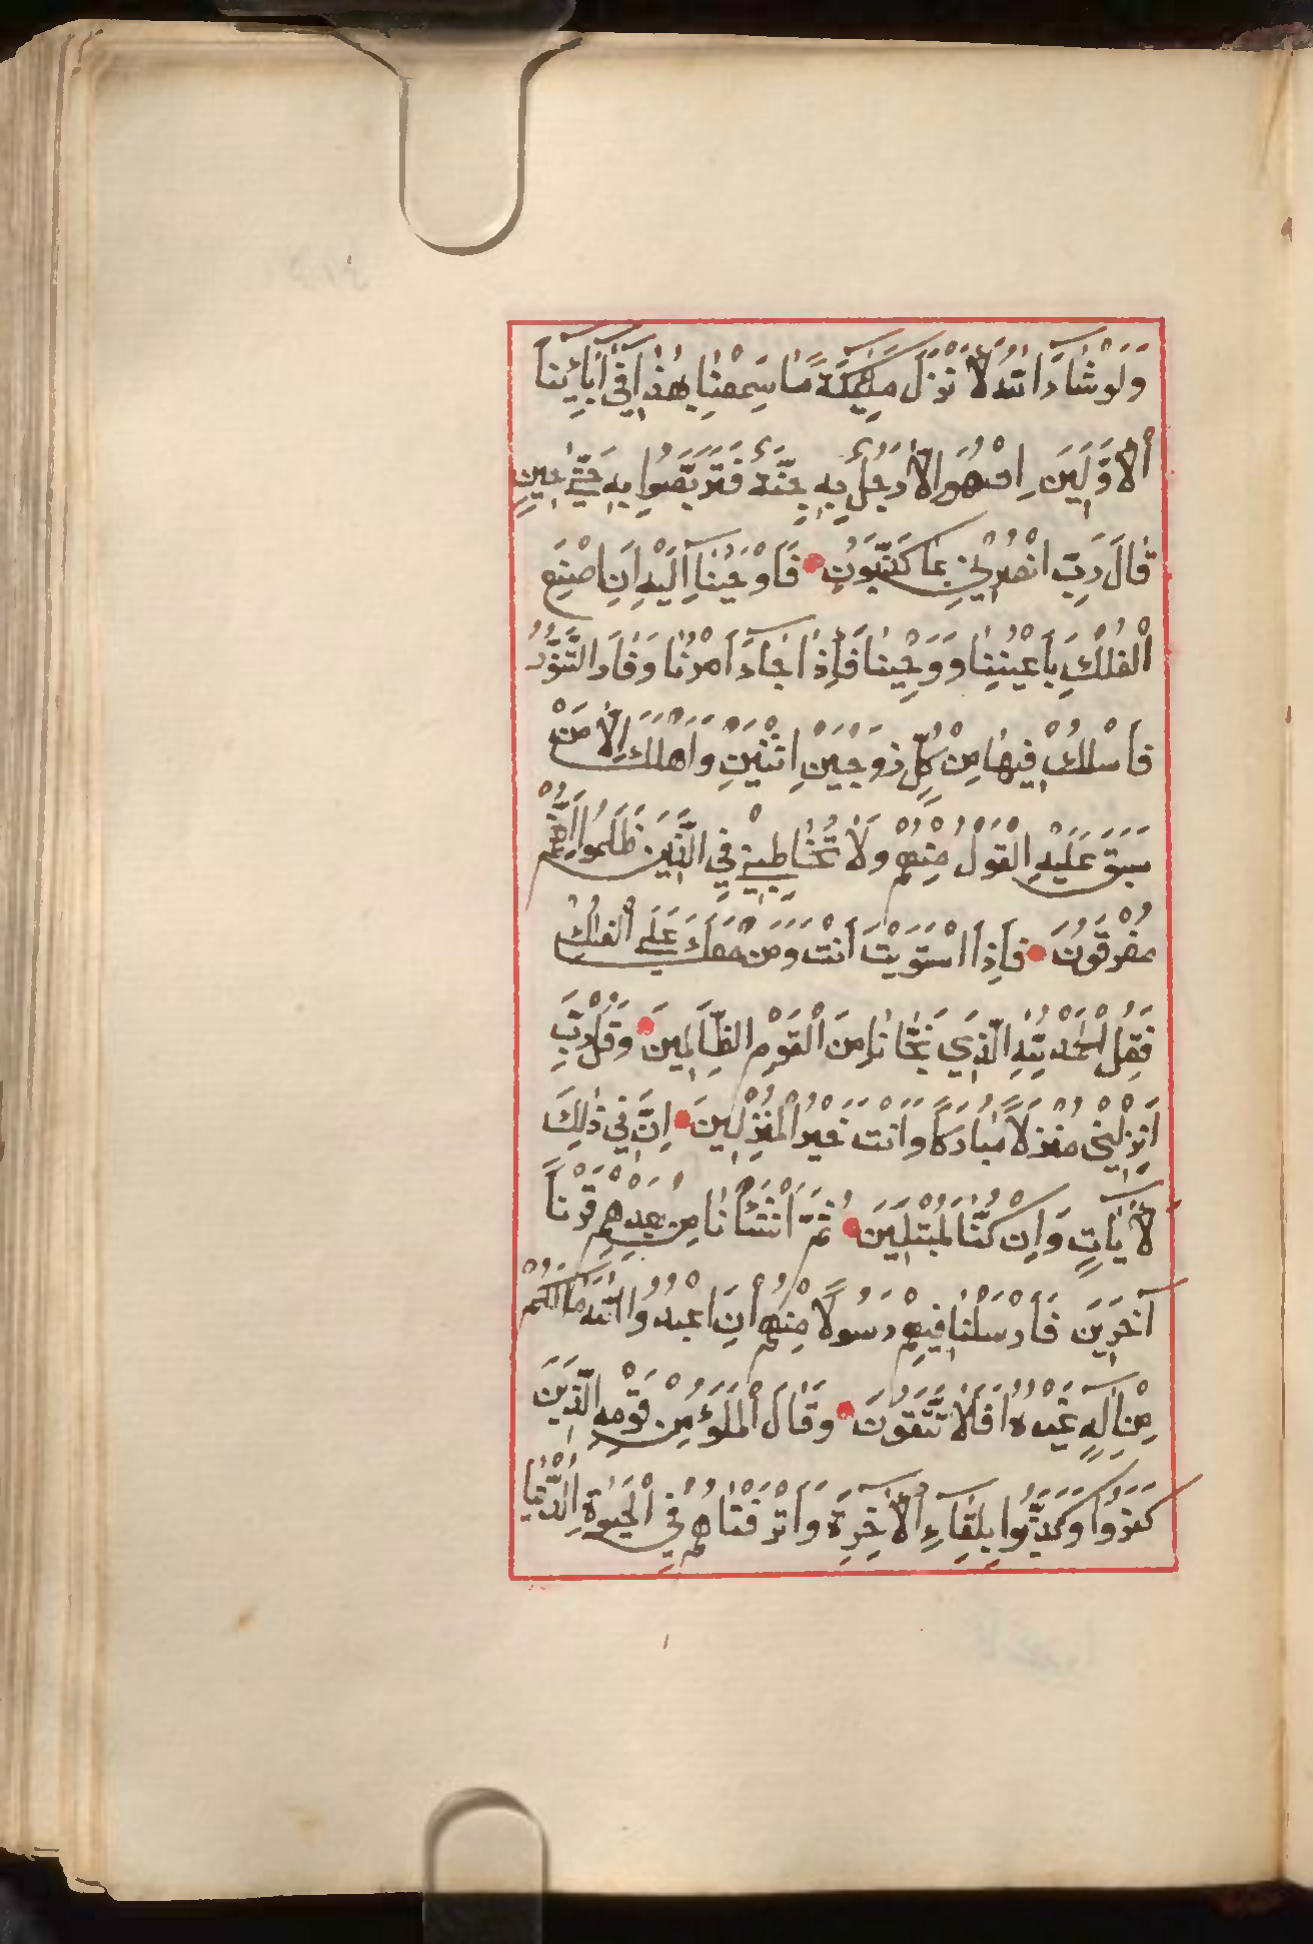 وَلَوْشَاءَ اللهُ لَأَنْزَلَ مَلٰئِكَةً مَا سَمِعْنَا بِهٰذَا فِي اٰبَائِنَا
الْأَوَّلِينَ اِنْ هُوَ اِلَّا رَجُلٌ بِهِ جِنَّةٌ فَتَرَبَّصُوا بِهِ حَتَّى حِينٍ
قَالَ رَبِّ انْصُرْنِي بِمَا كَذَّبُونِ فَاَوْحَيْنَا اِلَيْهِ اَنِ اصْنَعِ
الْفُلْكَ بِاَعْيُنِنَا وَوَحْيِنَا فَاِذَا جَاءَ اَمْرُنَا وَفَارَ التَّنُّورُ
فَاسْلُكْ فِيهَا مِنْ كُلٍّ زَوْجَيْنِ اثْنَيْنِ وَاَهْلَكَ اِلَّا مَنْ
سَبَقَ عَلَيْهِ الْقَوْلُ مِنْهُمْ وَلَا تُخَاطِبْنِي فِي الَّذِينَ ظَلَمُوا اِنَّهُمْ
مُغْرَقُونَ فَاِذَا اسْتَوَيْتَ اَنْتَ وَمَنْ مَعَكَ عَلَى الْفُلْكِ
فَقُلِ الْحَمْدُ لِلهِ الَّذِي نَجَّانَا مِنَ الْقَوْمِ الظَّالِمِينَ وَقُلْ رَبِّ
اَنْزِلْنِي مُنْزَلًا مُبَارَكًا وَاَنْتَ خَيْرُ الْمُنْزِلِينَ اِنَّ فِي ذٰلِكَ
لَاٰيَاتٍ وَاِنْ كُنَّا لَمُبْتَلِينَ ثُمَّ اَنْشَأْنَا مِنْ بَعْدِهِمْ قَرْنًا
آخَرِينَ فَاَرْسَلْنَا فِيهِمْ رَسُولًا مِنْهُمْ اَنِ اعْبُدُوا اللهَ مَا لَكُمْ
مِنْ اِلٰهٍ غَيْرُهُ اَفَلَا تَتَّقُونَ وَقَالَ الْمَلَؤُ مِنْ قَوْمِهِ الَّذِينَ
كَفَرُوا وَكَذَّبُوا بِلِقَاءِ الْاٰخِرَةِ وَاَتْرَفْنَاهُمْ فِي الْحَيٰوةِ الدُّنْيَا